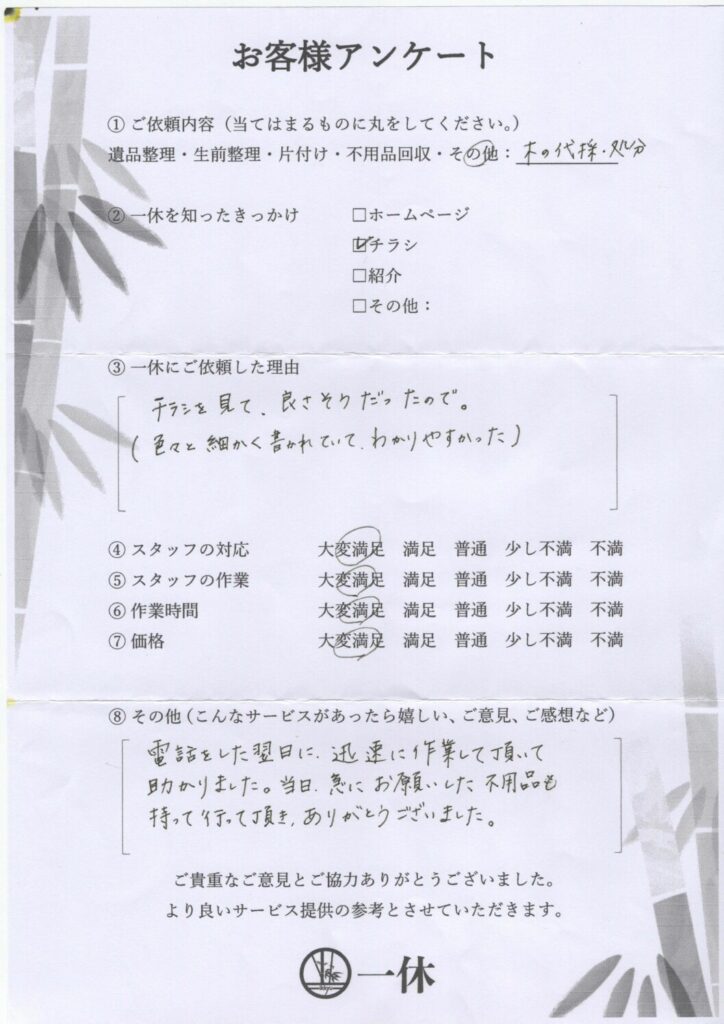 お客様アンケート
① ご依頼内容（当てはまるものに丸をしてください。）
遺品整理・生前整理・片付け・不用品回収・その他：木の代採・処分
② 一休を知ったきっかけ
□ホームページ
☑チラシ
□紹介
□その他：
③ 一休にご依頼した理由
チラシを見て、良さそうだったので。
(色々と細かく書かれていて、わかりやすかった)
④ スタッフの対応 大変満足 満足 普通 少し不満 不満
⑤ スタッフの作業 大変満足 満足 普通 少し不満 不満
⑥ 作業時間 大変満足 満足 普通 少し不満 不満
⑦ 価格 大変満足 満足 普通 少し不満 不満
⑧ その他（こんなサービスがあったら嬉しい、ご意見、ご感想など）
電話をした翌日に、迅速に作業して頂いて
助かりました。当日、急にお願いした不用品も
持って行って頂き、ありがとうございました。
ご貴重なご意見とご協力ありがとうございました。
より良いサービス提供の参考とさせていただきます。
一休